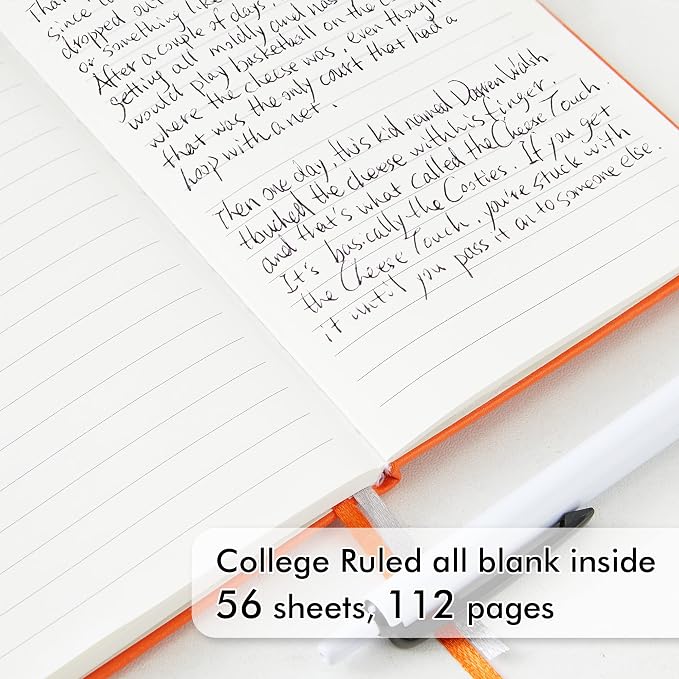 Than
since t
dropped out
or something like
After a couple of days,
getting all moldly and nas
would play basketball on the c
where the cheese was, even though
that was the only court that had a
hoop with a net.
Then one day, this kid named Darren Walsh
touched the cheese with his finger.
and that's what called the Cheese Touch.
It's basically the Cooties. If you get
the Cheese Touch, you're stuck with
it until you pass it on to someone else.
College Ruled all blank inside
56 sheets, 112 pages